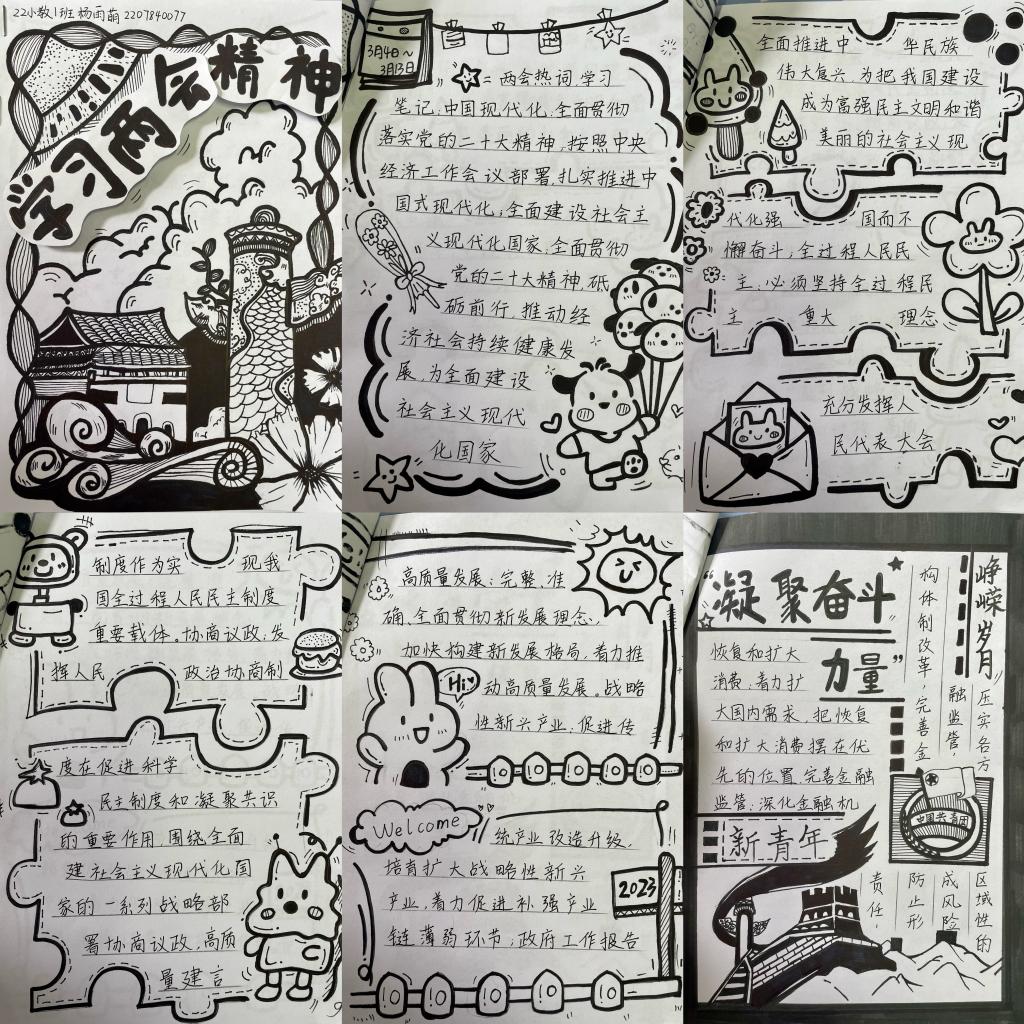 22小教1班 杨雨萌 2207840077
学习两会精神
3月4日～
3月13日
两会热词学习
笔记:中国现代化:全面贯彻
落实党的二十大精神,按照中央
经济工作会议部署,扎实推进中
国式现代化;全面建设社会主
义现代化国家,全面贯彻
党的二十大精神,砥
砺前行,推动经
济社会持续健康发
展,为全面建设
社会主义现代
化国家
全面推进中 华民族
伟大复兴,为把我国建设
成为富强民主文明和谐
美丽的社会主义现
代化强 国而不
懈奋斗;全过程人民民
主:必须坚持全过程民
主 重大 理念
充分发挥人
民代表大会
制度作为实 现我
国全过程人民民主制度
重要载体。协商议政:发
挥人民 政治协商制
度在促进科学
民主制度和凝聚共识
的重要作用,围绕全面
建社会主义现代化国
家的一系列战略部
署协商议政,高质
量建言
高质量发展:完整、准
确、全面贯彻新发展理念,
加快构建新发展格局,着力推
动高质量发展。战略
性新兴产业:促进传
Hi
Welcome
统产业改造升级,
培育扩大战略性新兴
产业,着力促进补强产业
链薄弱环节;政府工作报告
2023
“凝聚奋斗
力量”
恢复和扩大
消费:着力扩
大国内需求,把恢复
和扩大消费摆在优
先的位置.完善金融
监管:深化金融机
构体制改革,完善金
融监管,
压实各方
责任,
防止形
成风险
区域性的
峥嵘岁月
新青年